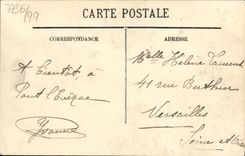 736/99
CARTE POSTALE
CORRESPONDANCE
ADRESSE
A bientôt à
Pont l'Evêque
Yvonne
Melle Hélène Laurent
41 rue Berthier
Versailles
Seine et